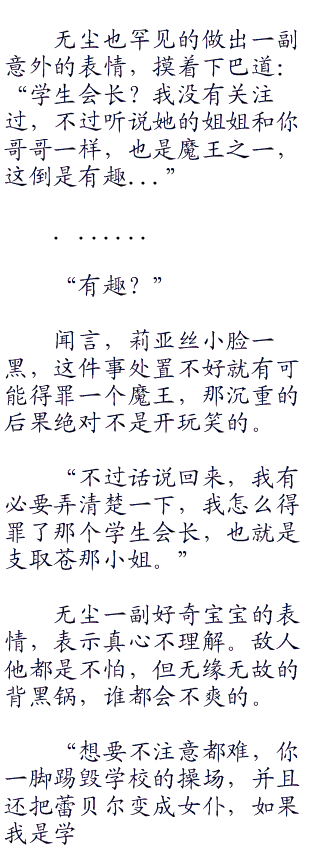 无尘也罕见的做出一副
意外的表情，摸着下巴道：
“学生会长？我没有关注
过，不过听说她的姐姐和你
哥哥一样，也是魔王之一，
这倒是有趣...”
. ......
“有趣？”
闻言，莉亚丝小脸一
黑，这件事处置不好就有可
能得罪一个魔王，那沉重的
后果绝对不是开玩笑的。
“不过话说回来，我有
必要弄清楚一下，我怎么得
罪了那个学生会长，也就是
支取苍那小姐。”
无尘一副好奇宝宝的表
情，表示真心不理解。敌人
他都是不怕，但无缘无故的
背黑锅，谁都会不爽的。
“想要不注意都难，你
一脚踢毁学校的操场，并且
还把蕾贝尔变成女仆，如果
我是学